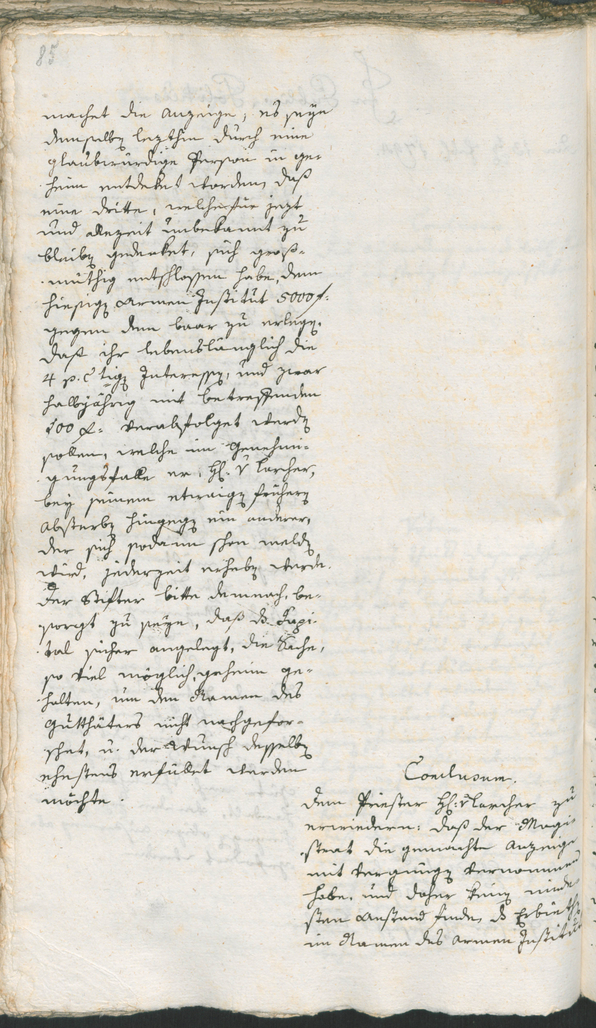 85
machet die Anzeuge, es seÿe
demselbg lezthin durch eine
glaubwürdige Person in ge-
heim entdeket worden, daß
eine dritte, welche für jezt
und allezeit unbekannt zu
bleibg gedenket, sich groß-
müthig entschlossen habe, dem
hiesigg Armen Institut 5000 f.
gegen dem baar zu erlegg,
daß ihr lebenslänglich die
4 p. Ctigg Interessg, und zwar
halbjährig mit betreffenden
100 f. verabfolget werdg
sollen, welche im Genehmi-
gungsfalle er, H. v Larcher,
beÿ seinem etwaigg früherg
Absterbg hingegg ein anderer,
der sich sodann schon meldg
wird, jederzeit erhebg werde.
Der Stifter bitte demnach, be-
sorgt zu seÿn, daß ds Kapi-
tal sicher angelegt, die Sache,
so viel möglich, geheim ge-
halten, um den Namen des
Gutthäters nicht nachgefor-
schet, u. der Wunsch desselbg
ehestens erfüllet werden
möchte.
Conclusum.
Dem Priester H: v Larcher zu
erwiedern: daß der Magi-
strat die gemachte Anzeuge
mit Vergnügg vernommen
habe, und daher keing minde-
sten Anstand finde, ds Erbieth
im Namen des Armen Institu